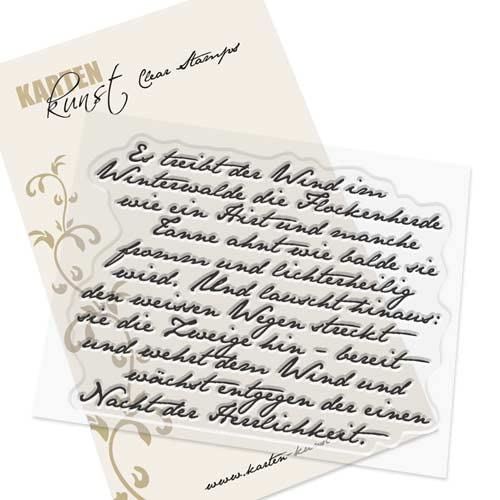 KARTEN
kunst Clear Stamps
Es treibt der Wind im
Winterwalde die Flockenherde
wie ein Hirt und manche
Tanne ahnt wie balde sie
fromm und lichterheilig
wird. Und lauscht hinaus:
den weissen Wegen streckt
sie die Zweige hin - bereit
und wehrt dem Wind und
wächst entgegen der einen
Nacht der Herrlichkeit.
www.karten-kunst